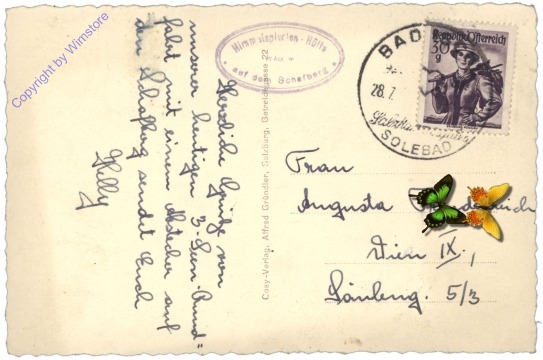 Copyright by Wimstore
Herzliche Grüße von
unserer heutigen "3-Seen Rund"
fahrt mit einem Abstecher auf
den Schafberg sendet Euch
Helly
Himmelspforten-Hütte
auf dem Schafberg
Cosy-Verlag, Alfred Gründler, Salzburg, Getreidegasse 22
BAD
28.7.
SOLEBAD
Republik Österreich
30 g
Frau
Augusta
Wien IX.,
5/3